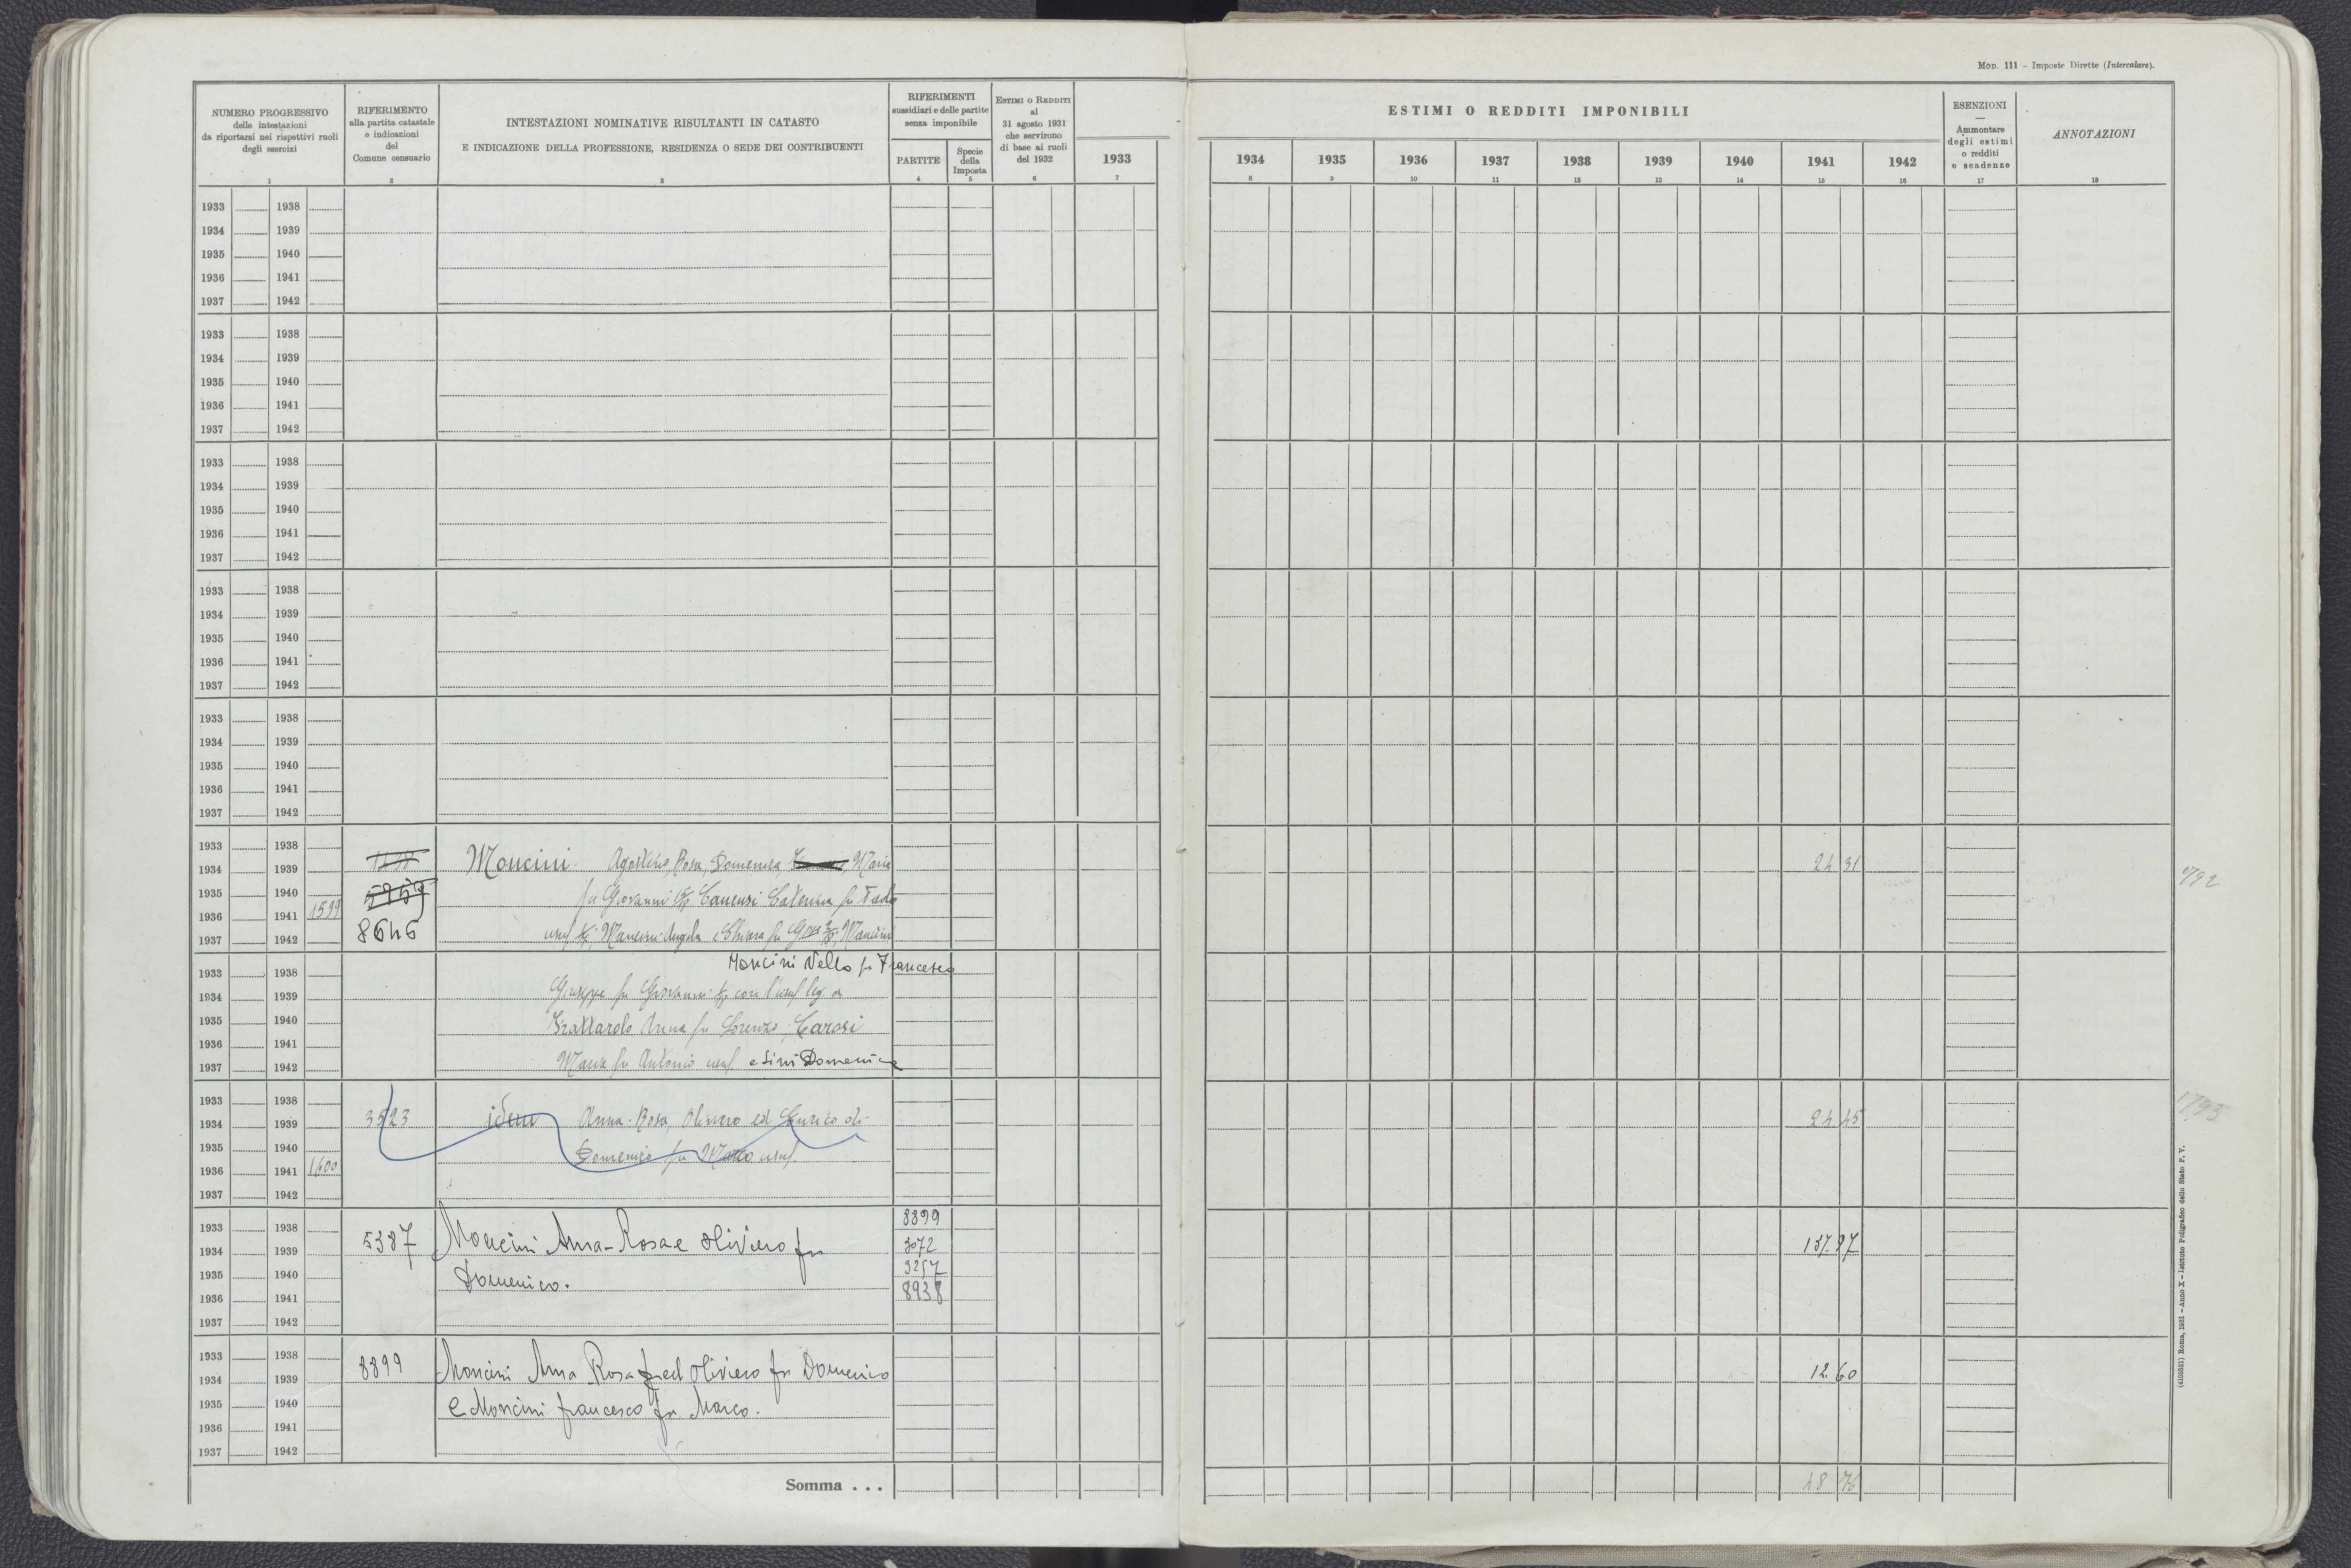 Mod. 111 – Imposte Dirette (Intercalare).
NUMERO PROGRESSIVO
delle intestazioni
da riportarsi nei rispettivi ruoli
degli esercizi
1
RIFERIMENTO
alla partita catastale
e indicazioni
del
Comune censuario
2
INTESTAZIONI NOMINATIVE RISULTANTI IN CATASTO
E INDICAZIONE DELLA PROFESSIONE, RESIDENZA O SEDE DEI CONTRIBUENTI
3
RIFERIMENTI
sussidiari e delle partite
senza imponibile
PARTITE
4
Specie
della
Imposta
5
ESTIMI O REDDITI
al
31 agosto 1931
che servirono
di base ai ruoli
del 1932
6
1933
7
ESTIMI O REDDITI IMPONIBILI
1934 1935 1936 1937 1938 1939 1940 1941 1942
8 9 10 11 12 13 14 15 16
ESENZIONI
—
Ammontare
degli estimi
o redditi
e scadenze
17
ANNOTAZIONI
18
1933 1938
1934 1939
1935 1940
1936 1941
1937 1942
1933 1938
1934 1939
1935 1940
1936 1941
1937 1942
1933 1938
1934 1939
1935 1940
1936 1941
1937 1942
1933 1938
1934 1939
1935 1940
1936 1941
1937 1942
1933 1938
1934 1939
1935 1940
1936 1941
1937 1942
1933 1938
1934 1939 Moncini Agostino, Rosa, Domenica, Maria 24 31 1792
1935 1940 fu Giovanni Caterina fu
1936 1941 1599
1937 1942 8646 usuf Angela e Chiara fu
1933 1938 Moncini Nello fu Francesco
1934 1939 Giuseppe fu Giovanni con l'usuf leg a
1935 1940 Anna fu Lorenzo, Carosi
1936 1941
1937 1942 Maria fu Antonio usuf e Sini Domenica
1933 1938 1793
1934 1939 3523 idem Anna-Rosa, Oliviero ed Enrico di 24 45
1935 1940 Domenico fu Marco usuf
1936 1941 1600
1937 1942
1933 1938 8899
1934 1939 5387 Moncini Anna-Rosa e Oliviero fu 3072 137.87
1935 1940 Domenico. 3257
1936 1941 8938
1937 1942
1933 1938 8899
1934 1939 Moncini Anna Rosa ed Oliviero fu Domenico 12.60
1935 1940 e Moncini Francesco fu Marco.
1936 1941
1937 1942
Somma . . . 48 76
(4103531) Roma, 1931 – Anno X – Istituto Poligrafico dello Stato P. V.